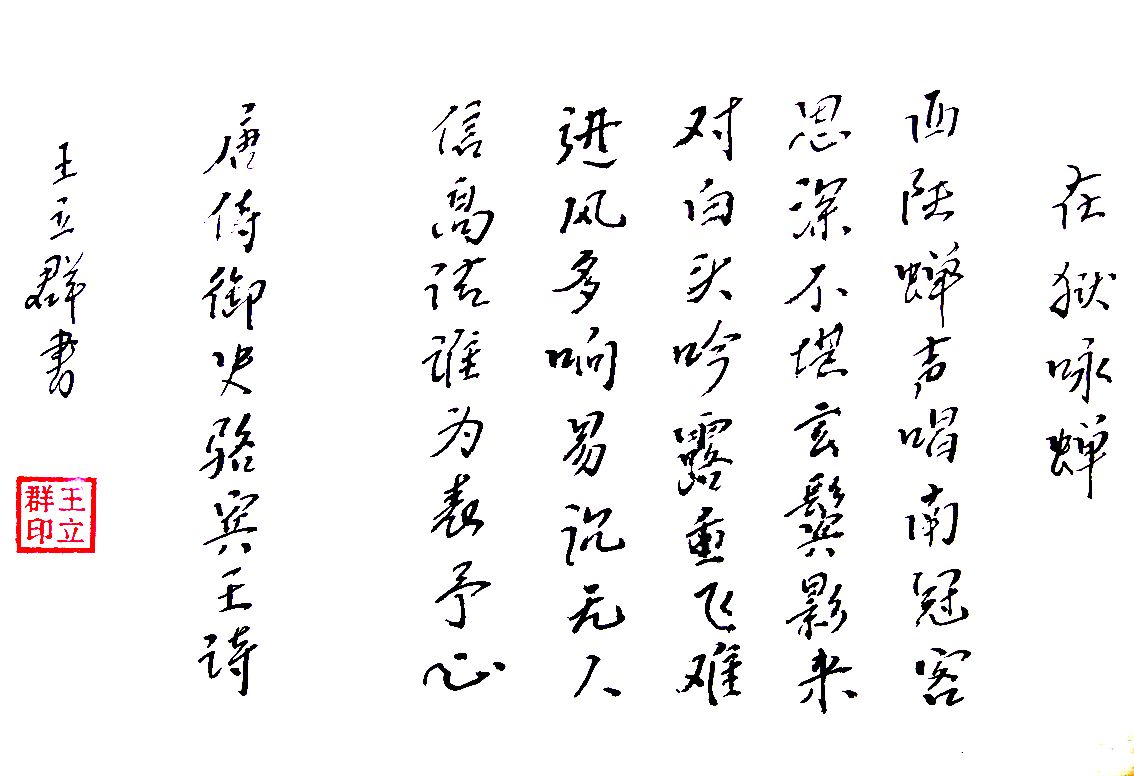 在狱咏蝉
西陆蝉声唱南冠客
思深不堪玄鬓影来
对白头吟露重飞难
进风多响易沉无人
信高洁谁为表予心
唐侍御史骆宾王诗
王立群书
王立群印